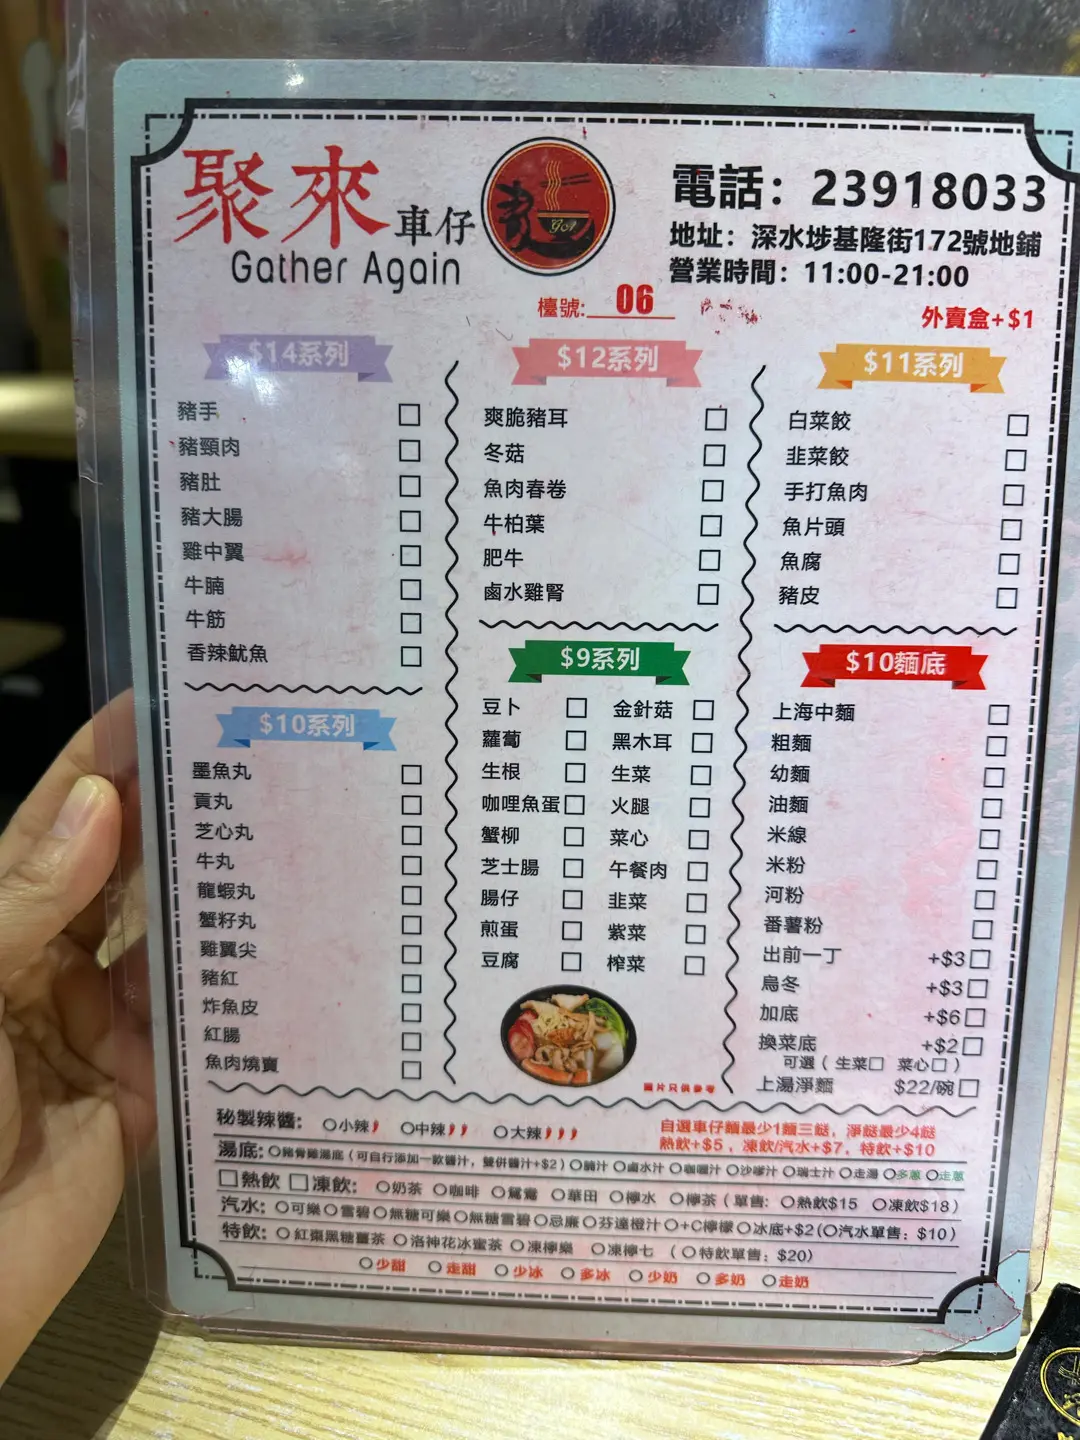 聚來車仔
Gather Again
電話：23918033
地址：深水埗基隆街172號地鋪
營業時間：11:00-21:00
檯號: 06
外賣盒+$1
$14系列
豬手
豬頸肉
豬肚
豬大腸
雞中翼
牛腩
牛筋
香辣魷魚
$10系列
墨魚丸
貢丸
芝心丸
牛丸
龍蝦丸
蟹籽丸
雞翼尖
豬紅
炸魚皮
紅腸
魚肉燒賣
$12系列
爽脆豬耳
冬菇
魚肉春卷
牛柏葉
肥牛
鹵水雞腎
$9系列
豆卜 金針菇
蘿蔔 黑木耳
生根 生菜
咖哩魚蛋 火腿
蟹柳 菜心
芝士腸 午餐肉
腸仔 韭菜
煎蛋 紫菜
豆腐 榨菜
圖片只供參考
$11系列
白菜餃
韭菜餃
手打魚肉
魚片頭
魚腐
豬皮
$10麵底
上海中麵
粗麵
幼麵
油麵
米線
米粉
河粉
番薯粉
出前一丁 +$3
烏冬 +$3
加底 +$6
換菜底 +$2
可選（生菜 菜心）
上湯淨麵 $22/碗
秘製辣醬： 小辣 中辣 大辣
自選車仔麵最少1麵三餸，淨餸最少4餸
熱飲+$5，凍飲/汽水+$7，特飲+$10
湯底: 豬骨雞湯底（可自行添加一款醬汁，雙併醬汁+$2） 腩汁 鹵水汁 咖喱汁 沙嗲汁 瑞士汁 走湯 多蔥 走蔥
熱飲 凍飲: 奶茶 咖啡 鴛鴦 華田 檸水 檸茶（單售: 熱飲$15 凍飲$18）
汽水: 可樂 雪碧 無糖可樂 無糖雪碧 忌廉 芬達橙汁 +C檸檬 冰底+$2(汽水單售：$10）
特飲: 紅棗黑糖薑茶 洛神花冰蜜茶 凍檸樂 凍檸七 （特飲單售：$20）
少甜 走甜 少冰 多冰 少奶 多奶 走奶